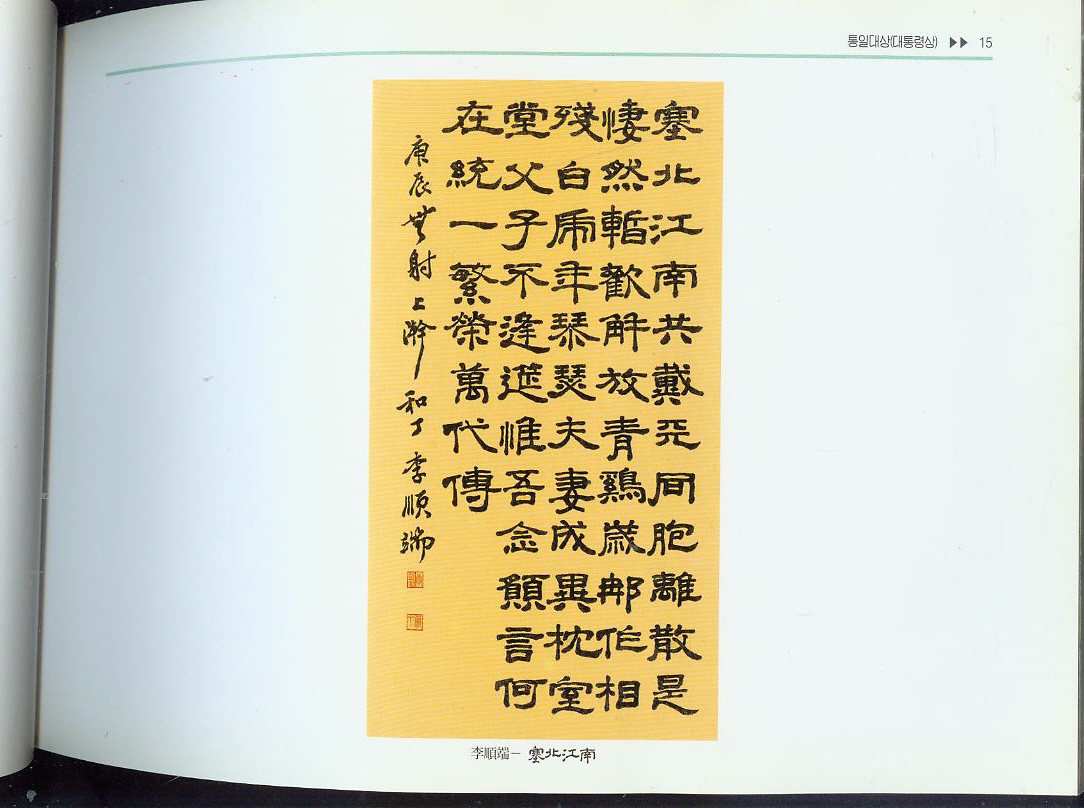 통일대상(대통령상) ▶▶ 15
塞北江南共戴天同胞離散是
悽然暫歡解放青鷄歲那作相
殘白虎年琴瑟夫妻成異枕室
堂父子不逢筵惟吾念願言何
在統一繁榮萬代傳
庚辰無射上澣 和丁 李順端
李順端－ 塞北江南